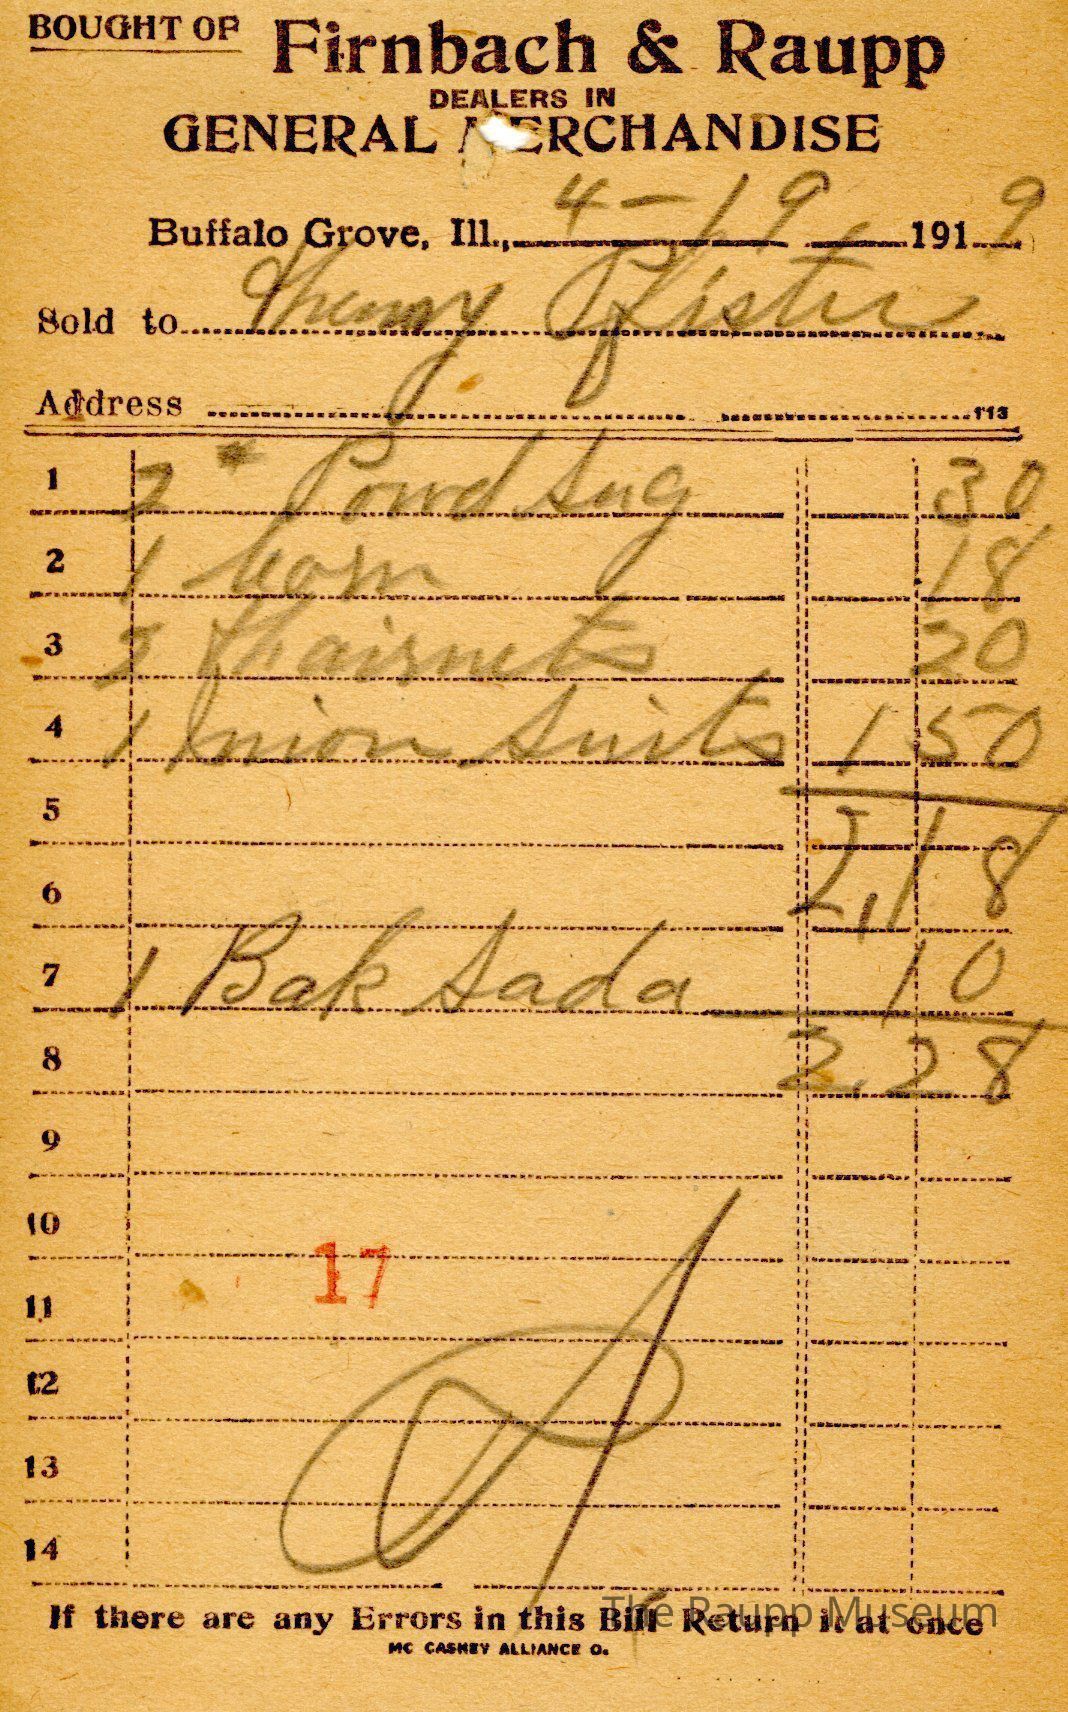 BOUGHT OF Firnbach & Raupp
DEALERS IN
GENERAL MERCHANDISE
Buffalo Grove, Ill., 4-19 1919
Sold to Henry Pfister
Address 113
1 2 # Powd Sug 30
2 1 Corn 18
3 2 Hairnets 20
4 1 Union Suits 1 50
5
6 2,18
7 1 Bak Sada 10
8 2,28
9
10
17
11
12
13
14
If there are any Errors in this Bill Return it at once
MC CASKEY ALLIANCE O.
The Raupp Museum